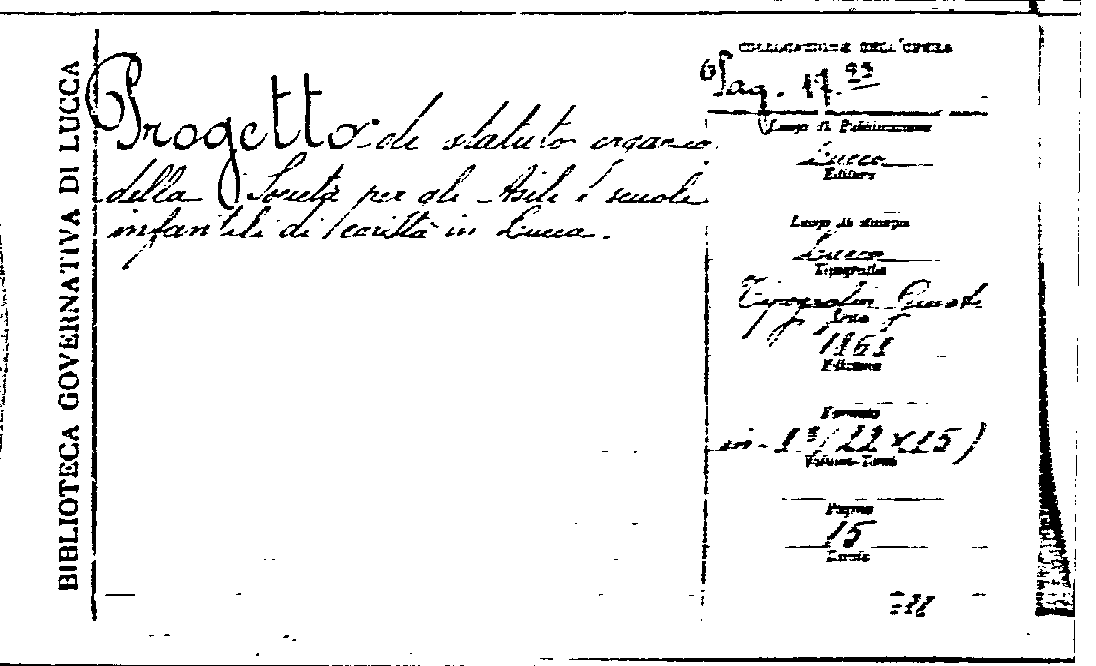 BIBLIOTECA GOVERNATIVA DI LUCCA
Progetto di statuto organico
della Società per gli Asili e scuole
infantili di carità in Lucca.
COLLOCAZIONE DELL'OPERA
Luogo di Pubblicazione
Lucca
Editore
Luogo di stampa
Lucca
Tipografia
Tipografia Giusti
Anno
Edizione
Formato
Volume-Tomo
Pagine
15